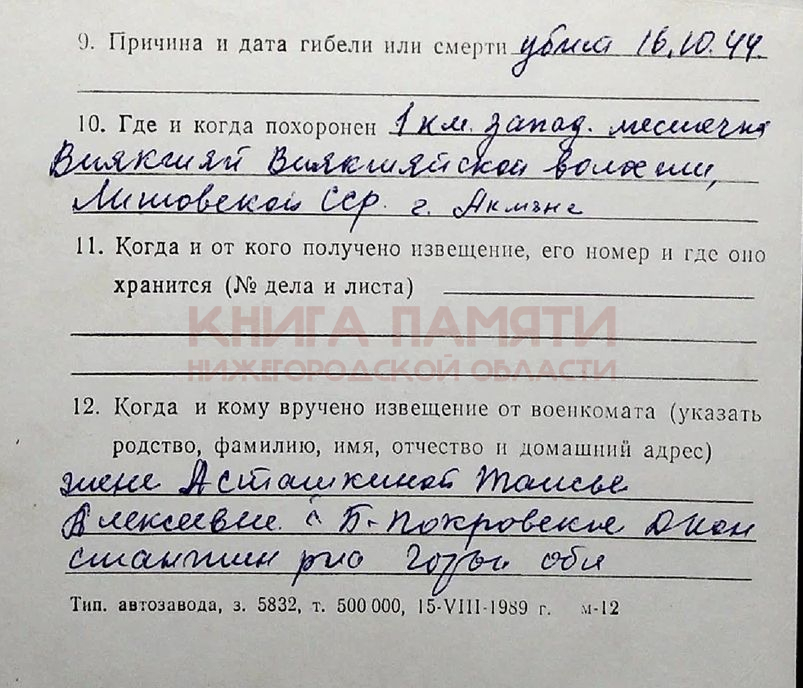 9. Причина и дата гибели или смерти убит 16.10.44.
10. Где и когда похоронен 1 км. запад. местечка
Виякшяй Виякшяйской волости,
Литовской ССР. г. Акмэне
11. Когда и от кого получено извещение, его номер и где оно
хранится (№ дела и листа)
КНИГА ПАМЯТИ
НИЖЕГОРОДСКОЙ ОБЛАСТИ
12. Когда и кому вручено извещение от военкомата (указать
родство, фамилию, имя, отчество и домашний адрес)
жене Асташкиной Таисье
Алексеевне с Б-Покровское Дкон
стантин рно обл
Тип. автозавода, з. 5832, т. 500 000, 15-VIII-1989 г. м-12